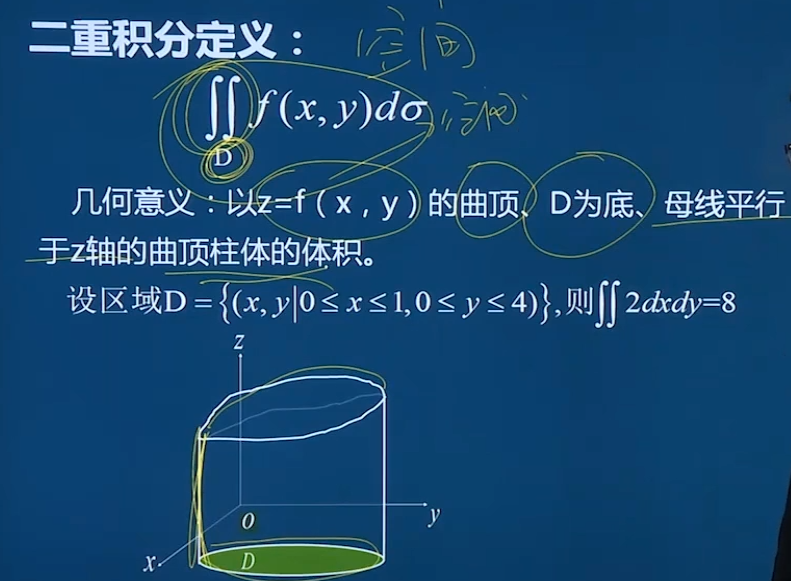 二重积分定义：
空间
∬ f(x, y)dσ 空间
D
几何意义：以z=f（x，y）的曲顶、D为底、母线平行
于z轴的曲顶柱体的体积。
设区域D={(x, y|0≤x≤1,0≤y≤4)},则∬2dxdy=8
z
O
y
x
D